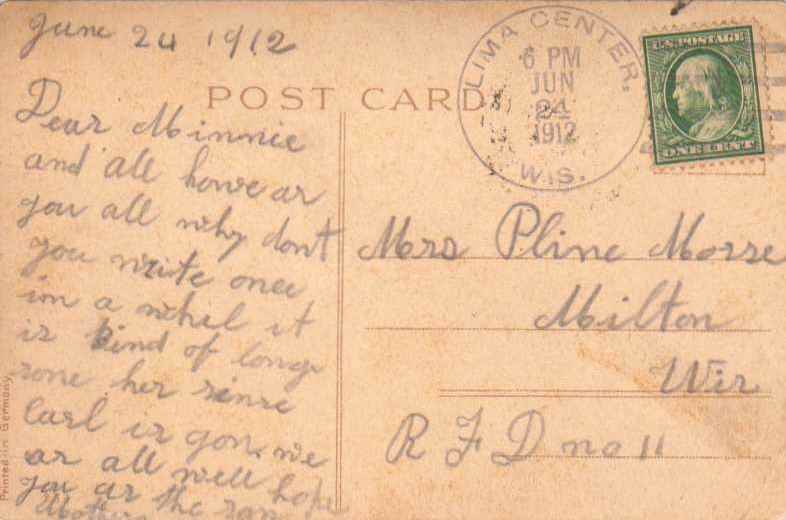 June 24 1912
POST CARD
LIMA CENTER,
6 PM
JUN
24
1912
WIS.
U.S. POSTAGE
ONE CENT
Dear Minnie
and all howe ar
you all why dont
you write once
in a whil it
is kind of long
sone her sinse
Carl is gon. we
ar all well hope
you ar the sam
Mother
Mrs Pline Morse
Milton
Wis
R F D no 11
Printed in Germany